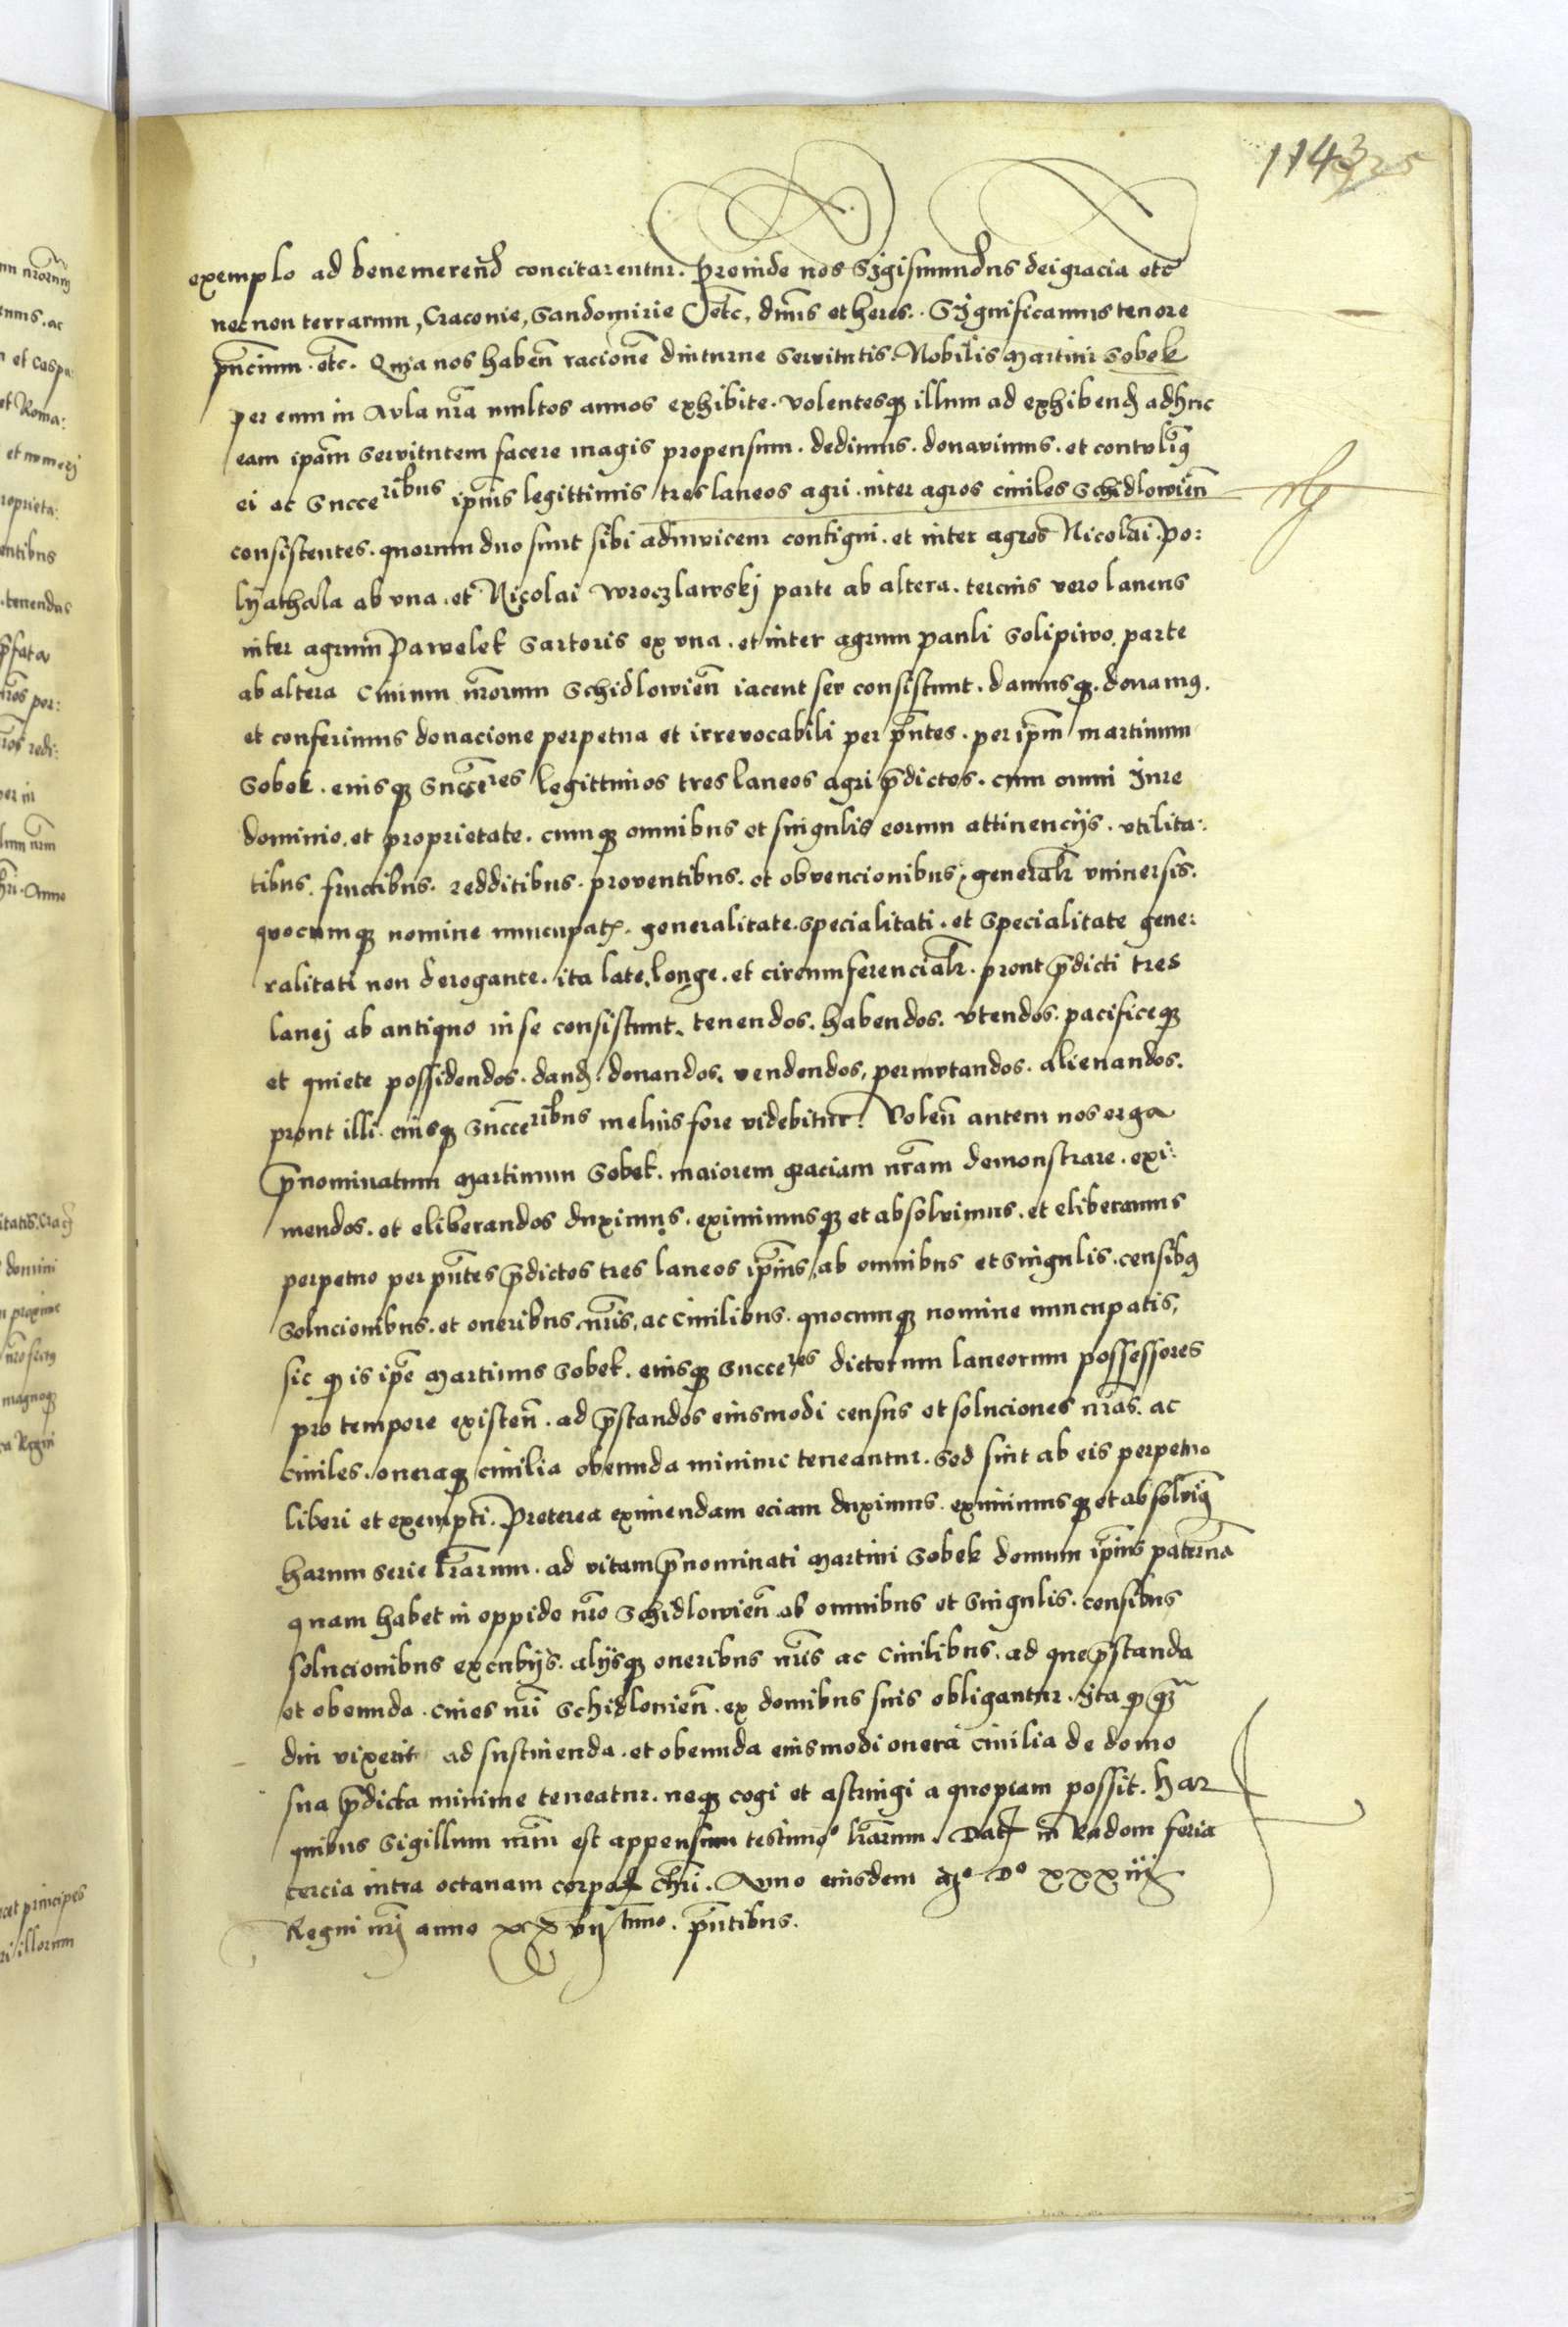 1143
exemplo ad benemerend concitarentur. Proinde nos Sigismundus dei gracia etc
necnon terrarum, Craconie, Sandomirie etc, dnus et heres. Significamus tenore
pncium. etc. Quia nos haben racione diuturne servitutis. Nobilis Martini Sobek
per eum in Avla nra multos annos exhibite. volentesq illum ad exhibend adhuc
eam ipam servitutem facere magis propensum. dedimus. donavimus. et contulimg
ei ac Succeribus ipius legittimis tres laneos agri. inter agros civiles Schidlowien
consistentes. quorum duo sunt sibi adinvicem contigui. et inter agros Nicolai. Po:
lyathala ab vna. et Nicolai Wroczlawskj parte ab altera. tercius vero laneus
inter agrum Pawelek Sartoris ex vna. et inter agrum Pauli Solipiwo. parte
ab altera Civium nrorum Schidlowien iacent sev consistunt. damusq. donamg.
et conferimus donacione perpetua et irrevocabili per pntes. per ipm Martinum
Sobek. eiusq Succeres legittimos tres laneos agri pdictos. cum omni Jure
dominio. et proprietate. cumq omnibus et singulis eorum attinencijs. vtilita:
tibus. fructibus. redditibus. proventibus. et obvencionibus, generalr vniversis.
quocumq nomine nuncupat. generalitate specialitati. et specialitate gene:
ralitati non derogante. ita late. longe. et circumferencialr. prout pdicti tres
lanej ab antiquo in se consistunt. tenendos. habendos. vtendos. pacificeq
et quiete possidendos. dand. donandos. vendendos, permutandos. alienandos.
prout illi. eiusq Succeribus melius fore videbitur. Volen autem nos erga
pnominatum Martinum Sobek. maiorem graciam nram demonstrare. exi:
mendos. et eliberandos duximus. eximimusq et absolvimus. et eliberamus
perpetuo per pntes pdictos tres laneos ipius, ab omnibus et singulis. censibg
Solucionibus. et oneribus nris, ac Civilibus. quocumq nomine nuncupatis,
sic q is ipe Martinus Sobek. eiusq Succeres dictorum laneorum possessores
pro tempore existen. ad pstandos eiusmodi census et soluciones nras. ac
civiles. oneraq civilia obeunda minime teneantur. Sed sint ab eis perpetuo
liberi et exempti. Preterea eximendam eciam duximus. eximimusq et absolvimg
harum serie lrarum. ad vitam pnominati Martini Sobek domum ipius paterna
quam habet in oppido nro Schidlowien ab omnibus et singulis. censibus
solucionibus excubijs. alijsq oneribus nris ac Civilibus. ad que pstanda
et obeunda. cives nri Schidlovien. ex domibus suis obligantur. Ita q
diu vixerit ad sustinenda. et obeunda eiusmodi onera civilia de domo
sua pdicta minime teneatur. neq cogi et astringi a quopiam possit. har
quibus Sigillum nrm est appensum testimo lrarum. Dat in Radom feria
tercia intra octavam corpor chri. Anno eiusdem Mo Do xxxiij
Regni nrj anno xxvijtimo. pntibus.